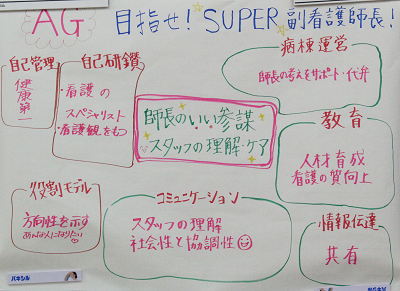 AG 目指せ！SUPER副看護師長！
自己管理
健康第一
自己研鑽
・看護の
スペシャリスト
・看護観をもつ
病棟運営
師長の考えをサポート・代弁
師長のいい参謀
スタッフの理解・ケア
教育
人材育成
看護の質向上
役割モデル
方向性を示す
あんな人になりたい♡
コミュニケーション
スタッフの理解
社会性と協調性☺
情報伝達
共有